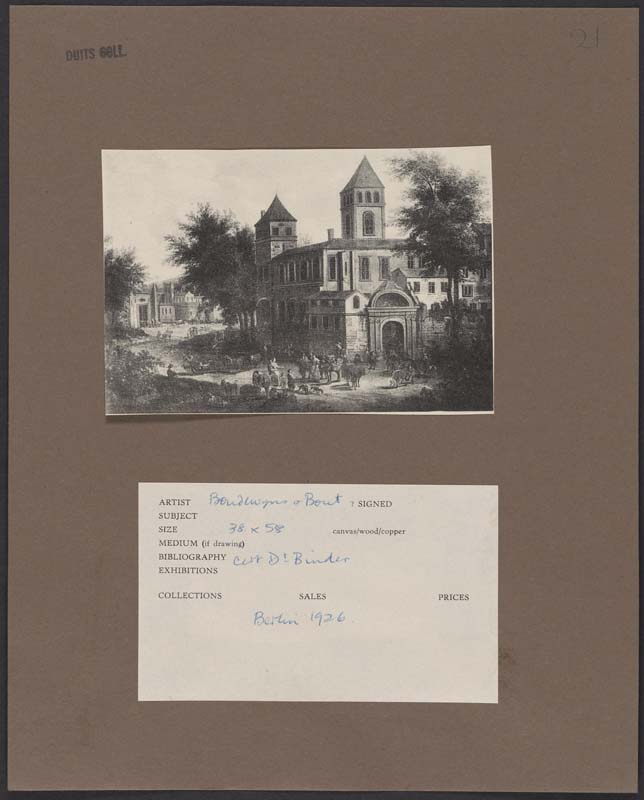 DUITS COLL.
21
ARTIST Boudewyns & Bout ? SIGNED
SUBJECT
SIZE 38 x 58 canvas/wood/copper
MEDIUM (if drawing)
BIBLIOGRAPHY cert Dr Binder
EXHIBITIONS
COLLECTIONS SALES PRICES
Berlin 1926.